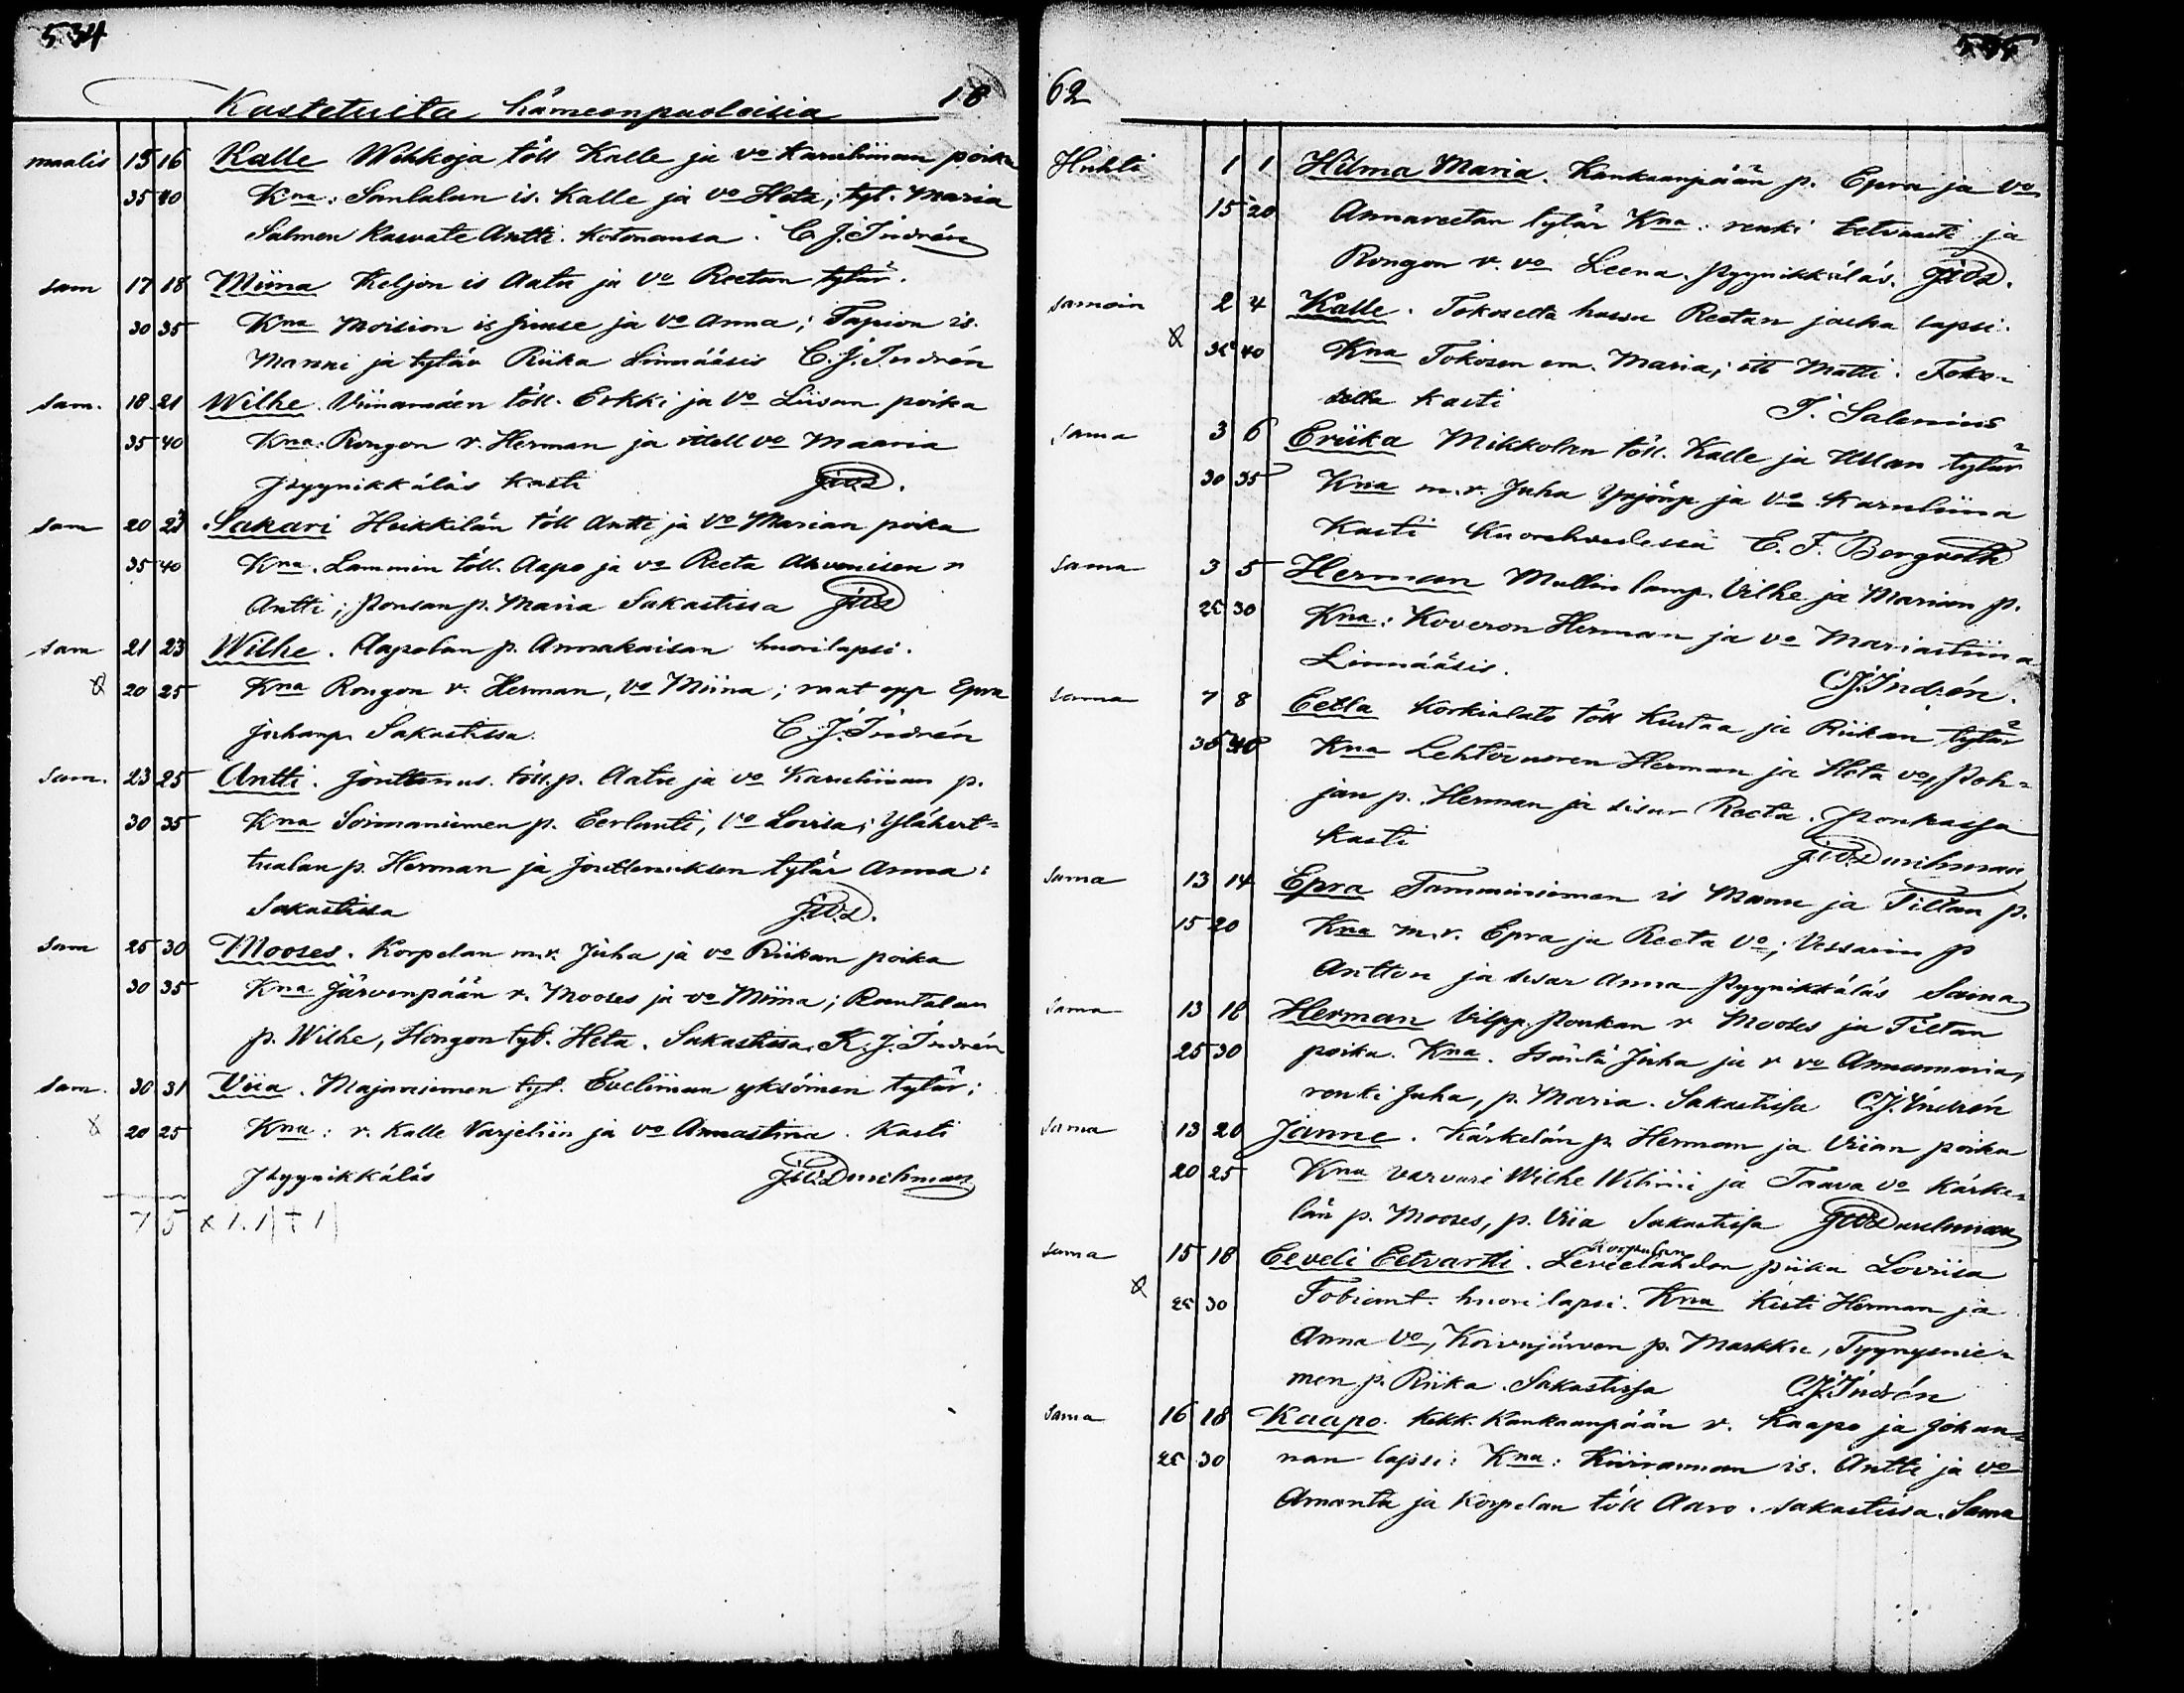 534
Kastetuita hämeenpuoleisia 18
maalis 15 16 Kalle Wihkoja töll Kalle ja vo Karuliinan poika
35 40 Kna: Santalan is. Kalle ja vo Heta; tyt. Maria
Salmen kasvate Antti. Kotonansa. C. J. Indrén
sam 17 18 Miina Keljon is Aatu ja Vo Reetan tytär.
30 35 Kna Moision is Juuse ja vo Anna; Tapion is.
Manni ja tytär Riika Linnääsis C. J. Indrén
sam. 18 21 Wilhe. Viinamäen töll. Erkki ja Vo Liisan poika
35 40 Kna: Rongon r. Herman ja itell vo Maaria
Pyynikkäläs kasti
sam 20 23 Sakari Heikkilän töll Antti ja Vo Marian poika
35 40 Kna. Lammin töll. Aapo ja vo Reeta Ahvenisen r
Antti; Pensan p. Maria Sakastissa
sam 21 23 Wilhe. Aapolan p. Annakaisan huorilapsi.
20 25 Kna Rongon r. Herman, vo Miina; raat opp Epra
Juhanp. Sakastissa. C. J. Indrén
sam. 23 25 Antti. Jouttenus. töll. p. Aatu ja vo Karuliinan p.
30 35 Kna Soimaniemen p. Eerlanti, vo Lovisa; Ylähert=
tualan p. Herman ja Jouttenuksen tytär Anna:
Sakastissa
sam 25 30 Mooses. Korpelan m.r. Juha ja vo Riikan poika
30 35 Kna Järvenpään r. Mooses ja vo Miina; Rantalan
p. Wilhe, Hongon tyt. Heta. Sakastissa. K. J. Indrén
sam. 30 31 Viia. Majaniemen tyt. Eveliinan yksöinen tytär:
20 25 Kna: r. Kalle Varjeliin ja vo Annastina. Kasti
Pyynikkäläs
7 5 x 1.1 † 1
62
Huhti 1 1 Hilma Maria. Kankaanpään p. Epra ja vo
15 20 Annareetan tytär Kna: renki Eetvartti ja
Rongon r. vo Leena. Pyynikkäläs.
samoin 2 4 Kalle. Tokoselta Reetan lapsi.
35 40 Kna Tokosen em. Maria; itt Matti. Toko-
selta kasti T. Salenius
sama 3 6 Eriika Mikkolan töll. Kalle ja Ullan tytär
30 35 Kna m.r. Juha Yrjönp ja vo Karuliina
Kasti Kuorehvedessä
sama 3 5 Herman Mullin lamp. Vilhe ja Marian p.
25 30 Kna: Koveron Herman ja vo Mariastiina
Linnääsis. C. J. Indrén.
sama 7 8 Eetla Korkialato töll Kustaa ja Riikan tytär
35 40 Kna Lehtivuoren Herman ja Heta vo, Poh=
jan p. Herman ja sisar Reeta.
kasti
sama 13 14 Epra Tamminiemen is Manu ja Tiltan p.
15 20 Kna m.r. Epra ja Reeta vo; Vessarin p
Antton ja sisar Anna Pyynikkäläs Sama
sama 13 18 Herman Vilpp. Poukan r Mooses ja Tiltan
25 30 poika. Kna. Isäntä Juha ja r vo Annamaria,
renki Juha, p. Maria. Sakastissa C. J. Indrén
sama 13 20 Janne. Kärkelän p. Herman ja Viian poika
20 25 Kna varvari Wilhe ja Taava vo Kärke=
län p. Mooses, p. Viia Sakastissa
sama 15 18 Eeveli Eetvartti. Leveelahden piika Loviisa
25 30 huorilapsi. Kna kisti Herman ja
Anna vo, Koivujärven p. Markku, Tyynysnie-
men p. Riika. Sakastissa C. J. Indrén
sama 16 18 Kaapo. Kekk. Kankaanpään r. Kaapo ja Johan=
25 30 nan lapsi: Kna: Kiiranman is. Antti ja vo
Amanta ja Korpelan töll Aaro. Sakastissa. Sama